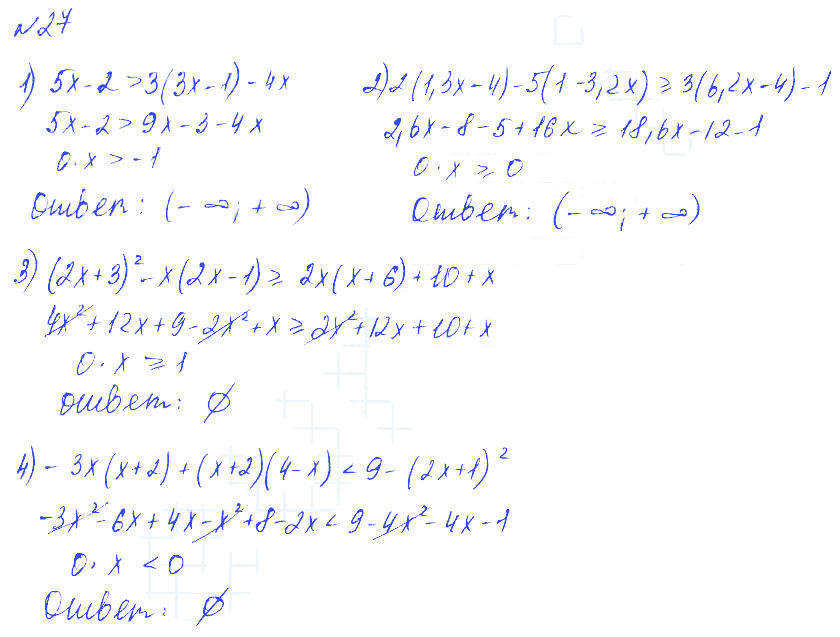 №27
1) 5x-2>3(3x-1)-4x
5x-2>9x-3-4x
0·x>-1
Ответ: (-∞;+∞)
2) 2(1,3x-4)-5(1-3,2x)≥3(6,2x-4)-1
2,6x-8-5+16x≥18,6x-12-1
0·x≥0
Ответ: (-∞;+∞)
3) (2x+3)²-x(2x-1)≥2x(x+6)+10+x
4x²+12x+9-2x²+x≥2x²+12x+10+x
0·x≥1
Ответ: ∅
4) -3x(x+2)+(x+2)(4-x)<9-(2x+1)²
-3x²-6x+4x-x²+8-2x<9-4x²-4x-1
0·x<0
Ответ: ∅